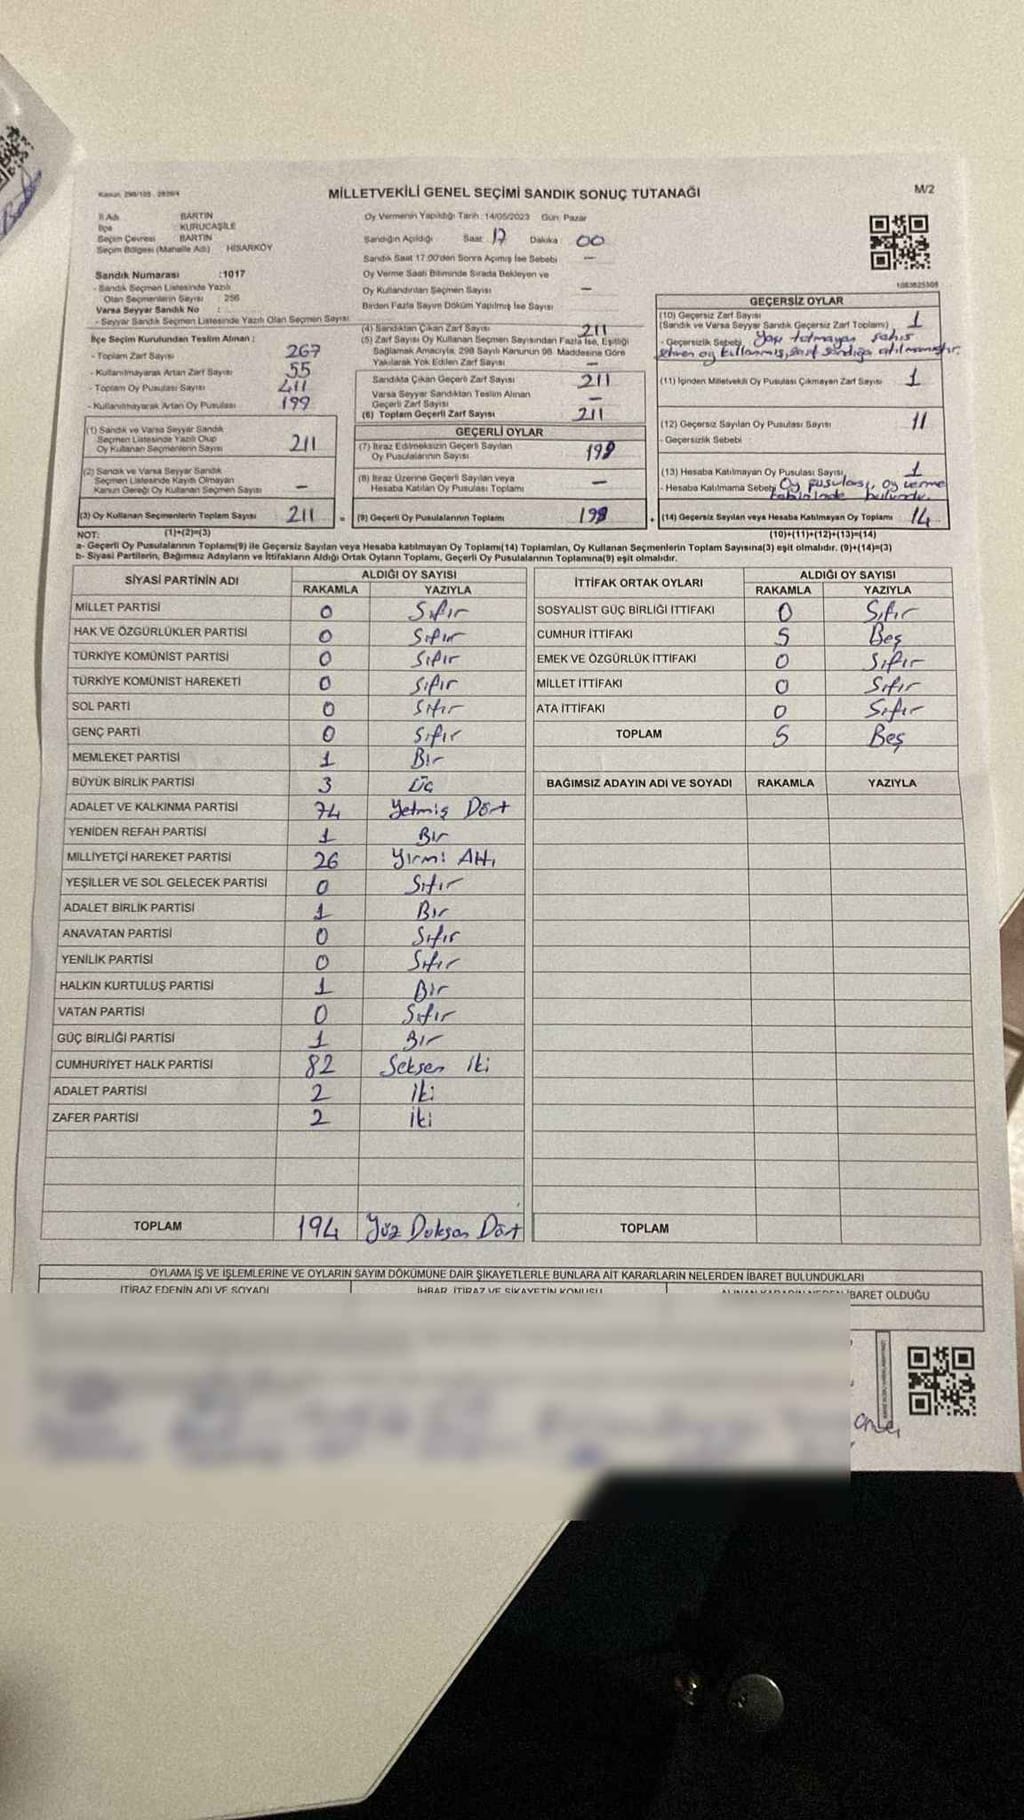 Kanun: 298/105 , 2839/4
MİLLETVEKİLİ GENEL SEÇİMİ SANDIK SONUÇ TUTANAĞI
M/2
İl Adı BARTIN
İlçe KURUCAŞİLE
Seçim Çevresi BARTIN
Seçim Bölgesi (Mahalle Adı) HİSARKÖY
Oy Vermenin Yapıldığı Tarih :14/05/2023 Gün: Pazar
Sandığın Açıldığı Saat 17 Dakika 00
Sandık Saat 17:00'den Sonra Açımış İse Sebebi —
Oy Verme Saati Bitiminde Sırada Bekleyen ve
Oy Kullandırılan Seçmen Sayısı —
Birden Fazla Sayım Döküm Yapılmış İse Sayısı
Sandık Numarası :1017
- Sandık Seçmen Listesinde Yazılı
Olan Seçmenlerin Sayısı 256
Varsa Seyyar Sandık No :
- Seyyar Sandık Seçmen Listesinde Yazılı Olan Seçmen Sayısı:
İlçe Seçim Kurulundan Teslim Alınan :
- Toplam Zarf Sayısı 267
- Kullanılmayarak Artan Zarf Sayısı 55
- Toplam Oy Pusulası Sayısı 411
- Kullanılmayarak Artan Oy Pusulası 199
(1) Sandık ve Varsa Seyyar Sandık
Seçmen Listesinde Yazılı Olup
Oy Kullanan Seçmenlerin Sayısı 211
(2) Sandık ve Varsa Seyyar Sandık
Seçmen Listesinde Kayıtlı Olmayan
Kanun Gereği Oy Kullanan Seçmen Sayısı —
(3) Oy Kullanan Seçmenlerin Toplam Sayısı 211
(4) Sandıktan Çıkan Zarf Sayısı 211
(5) Zarf Sayısı Oy Kullanan Seçmen Sayısından Fazla İse, Eşitliği
Sağlamak Amacıyla, 298 Sayılı Kanunun 98. Maddesine Göre
Yakılarak Yok Edilen Zarf Sayısı —
Sandıkta Çıkan Geçerli Zarf Sayısı 211
Varsa Seyyar Sandıktan Teslim Alınan
Geçerli Zarf Sayısı —
(6) Toplam Geçerli Zarf Sayısı 211
GEÇERLİ OYLAR
(7) İtiraz Edilmeksizin Geçerli Sayılan
Oy Pusulalarının Sayısı 199
(8) İtiraz Üzerine Geçerli Sayılan veya
Hesaba Katılan Oy Pusulası Toplamı —
= (9) Geçerli Oy Pusulalarının Toplamı 199
1083825308
GEÇERSİZ OYLAR
(10) Geçersiz Zarf Sayısı
(Sandık ve Varsa Seyyar Sandık Geçersiz Zarf Toplamı) 1
- Geçersizlik Sebebi Yaşı tutmayan şahıs
sehven oy kullanmış, zarf sandığa atılmamıştır.
(11) İçinden Milletvekili Oy Pusulası Çıkmayan Zarf Sayısı 1
(12) Geçersiz Sayılan Oy Pusulası Sayısı 11
- Geçersizlik Sebebi
(13) Hesaba Katılmayan Oy Pusulası Sayısı 1
- Hesaba Katılmama Sebebi Oy pusulası, oy verme
kabininde bulundu.
+ (14) Geçersiz Sayılan veya Hesaba Katılmayan Oy Toplamı 14
NOT: (1)+(2)=(3) (10)+(11)+(12)+(13)=(14)
a- Geçerli Oy Pusulalarının Toplamı(9) ile Geçersiz Sayılan veya Hesaba katılmayan Oy Toplamı(14) Toplamları, Oy Kullanan Seçmenlerin Toplam Sayısına(3) eşit olmalıdır. (9)+(14)=(3)
b- Siyasi Partilerin, Bağımsız Adayların ve İttifakların Aldığı Ortak Oyların Toplamı, Geçerli Oy Pusulalarının Toplamına(9) eşit olmalıdır.
SİYASİ PARTİNİN ADI ALDIĞI OY SAYISI
RAKAMLA YAZIYLA
MİLLET PARTİSİ 0 Sıfır
HAK VE ÖZGÜRLÜKLER PARTİSİ 0 Sıfır
TÜRKİYE KOMÜNİST PARTİSİ 0 Sıfır
TÜRKİYE KOMÜNİST HAREKETİ 0 Sıfır
SOL PARTİ 0 Sıfır
GENÇ PARTİ 0 Sıfır
MEMLEKET PARTİSİ 1 Bir
BÜYÜK BİRLİK PARTİSİ 3 Üç
ADALET VE KALKINMA PARTİSİ 74 Yetmiş Dört
YENİDEN REFAH PARTİSİ 1 Bir
MİLLİYETÇİ HAREKET PARTİSİ 26 Yirmi Altı
YEŞİLLER VE SOL GELECEK PARTİSİ 0 Sıfır
ADALET BİRLİK PARTİSİ 1 Bir
ANAVATAN PARTİSİ 0 Sıfır
YENİLİK PARTİSİ 0 Sıfır
HALKIN KURTULUŞ PARTİSİ 1 Bir
VATAN PARTİSİ 0 Sıfır
GÜÇ BİRLİĞİ PARTİSİ 1 Bir
CUMHURİYET HALK PARTİSİ 82 Seksen İki
ADALET PARTİSİ 2 İki
ZAFER PARTİSİ 2 İki
TOPLAM 194 Yüz Doksan Dört
İTTİFAK ORTAK OYLARI ALDIĞI OY SAYISI
RAKAMLA YAZIYLA
SOSYALİST GÜÇ BİRLİĞİ İTTİFAKI 0 Sıfır
CUMHUR İTTİFAKI 5 Beş
EMEK VE ÖZGÜRLÜK İTTİFAKI 0 Sıfır
MİLLET İTTİFAKI 0 Sıfır
ATA İTTİFAKI 0 Sıfır
TOPLAM 5 Beş
BAĞIMSIZ ADAYIN ADI VE SOYADI RAKAMLA YAZIYLA
TOPLAM
OYLAMA İŞ VE İŞLEMLERİNE VE OYLARIN SAYIM DÖKÜMÜNE DAİR ŞİKAYETLERLE BUNLARA AİT KARARLARIN NELERDEN İBARET BULUNDUKLARI
İTİRAZ EDENİN ADI VE SOYADI İHBAR, İTİRAZ VE ŞİKAYETİN KONUSU ALINAN KARARIN NEDEN İBARET OLDUĞU